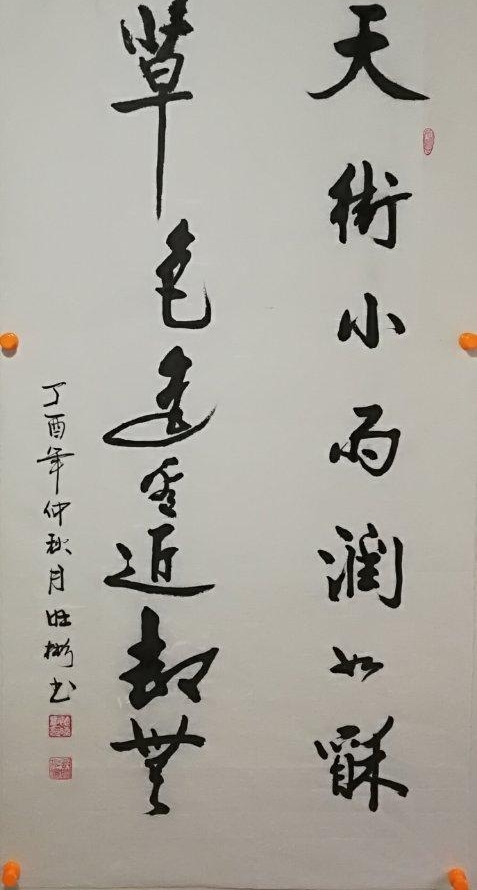 天街小雨润如酥
草色遥看近却無
丁酉年仲秋月旺彬书